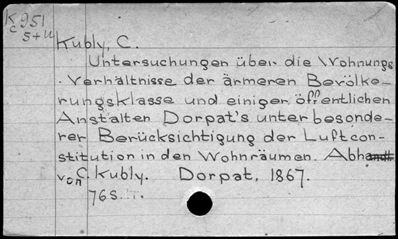 K 951
c 5+u
Kubly, C.
Untersuchungen über die Wohnungs
Verhältnisse der ärmeren Bevölke-
rungsklasse und einiger öffentlichen
Anstalten Dorpat's unter besonde-
rer Berücksichtigung der Luftcon-
stitution in den Wohnräumen. Abhandl
von C. Kubly. Dorpat, 1867.
76S.